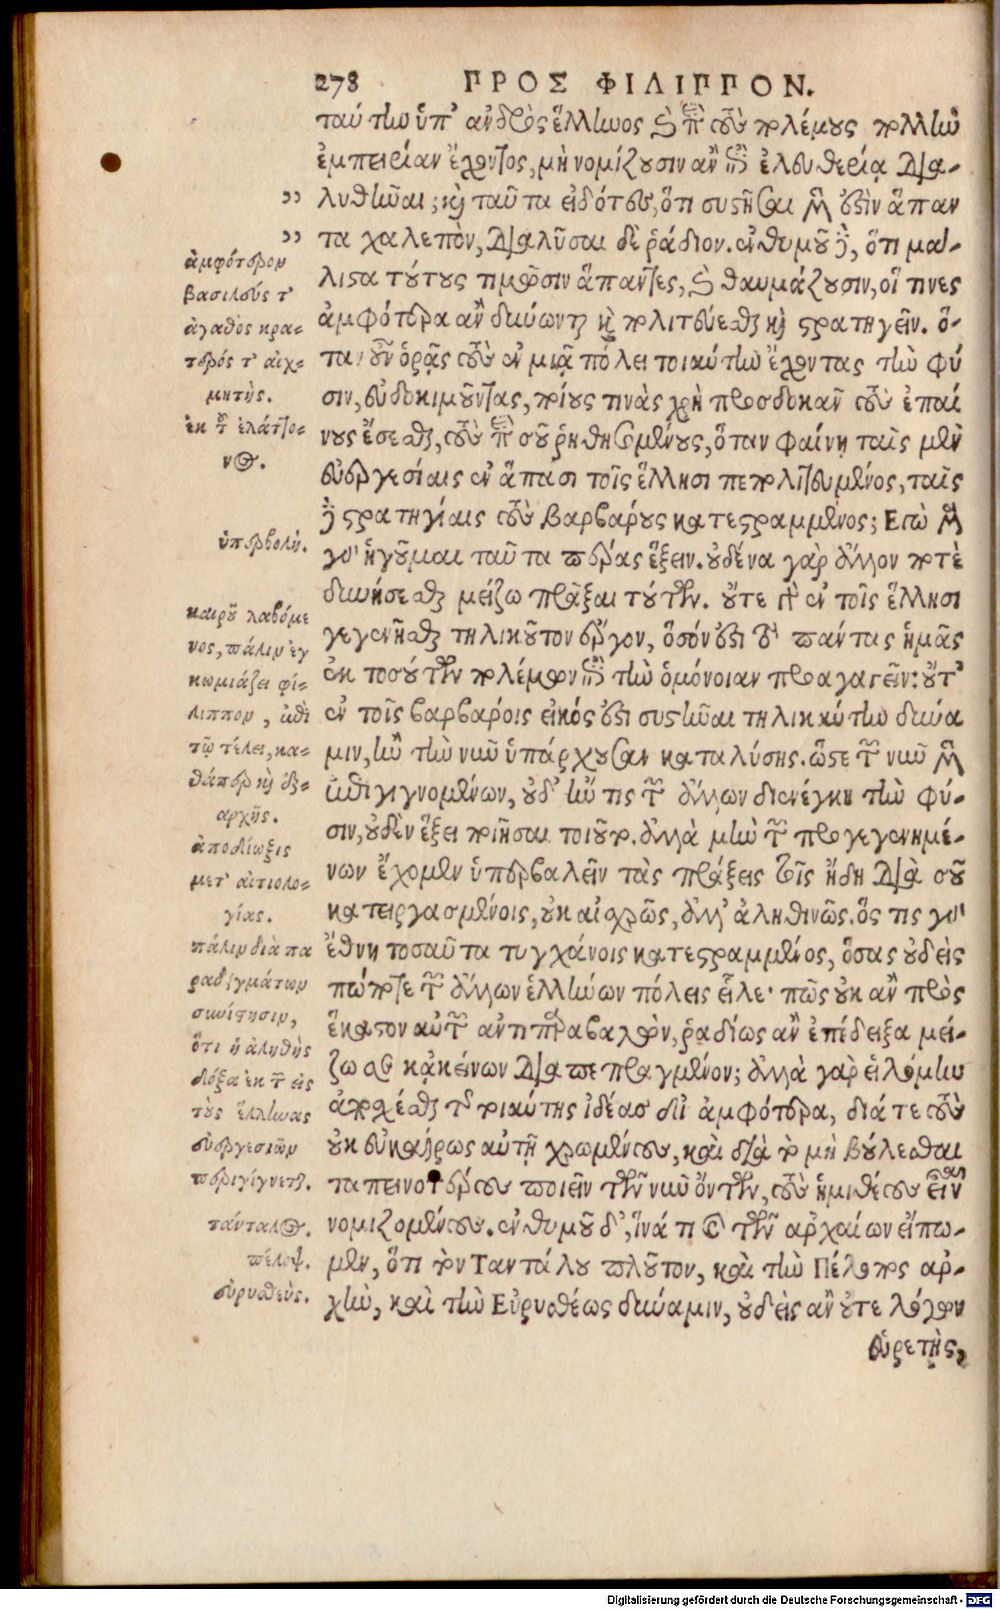 278 ΠΡΟΣ ΦΙΛΙΠΠΟΝ.
ταύτην ὑπ' ἀνδρὸς ἕλληνος καὶ περὶ τοὺς πολέμους πολλὴν
ἐμπειρίαν ἔχοντος, μὴ νομίζουσιν ἂν ἐπ' ἐλευθερίᾳ δια-
λυθῆναι; καὶ ταῦτα εἰδότες, ὅτι συστῆσαι μέν ἐστιν ἅπαν
τα χαλεπὸν, διαλῦσαι δὲ ῥάδιον. ἐνθυμοῦ δὲ, ὅτι μάλ-
λιστα τούτους τιμῶσιν ἅπαντες, καὶ θαυμάζουσιν, οἵ τινες
ἀμφότερα ἂν δύνωνται καὶ πολιτεύεσθαι καὶ στρατηγεῖν. ὅ-
ταν οὖν ὁρᾷς τοὺς ἐν μιᾷ πόλει τοιαύτην ἔχοντας τὴν φύ
σιν, εὐδοκιμοῦντας, ποίους τινὰς χρὴ προσδοκᾶν τοὺς ἐπαί
νους ἔσεσθαι, τοὺς περὶ σοῦ ῥηθησομένους, ὅταν φαίνῃ ταῖς μὲν
εὐεργεσίαις ἐν ἅπασι τοῖς ἕλλησι πεπολιτευμένος, ταῖς
δὲ στρατηγίαις τοὺς βαρβάρους κατεστραμμένος; Εγὼ μὲν
γὰρ ἡγοῦμαι ταῦτα πέρας ἕξειν. οὐδένα γὰρ ἄλλον ποτὲ
δυνήσεσθαι μείζω πρᾶξαι τούτων. οὔτε γὰρ ἐν τοῖς ἕλλησι
γεγενῆσθαι τηλικοῦτον ἔργον, ὅσον ἐστὶ τὸ πάντας ἡμᾶς
ἐκ τοσούτων πολέμων ἐπὶ τὴν ὁμόνοιαν προαγαγεῖν: οὔτ'
ἐν τοῖς βαρβάροις εἰκός ἐστι συστῆναι τηλικαύτην δύνα
μιν, ἢν τὴν νῦν ὑπάρχουσαν καταλύσῃς. ὥστε τῶν νῦν μὲν
ἐπιγιγνομένων, οὐδ' ἤν τις τῶν ἄλλων διενέγκῃ τὴν φύ-
σιν, οὐδὲν ἕξει ποιῆσαι τοιοῦτο. ἀλλὰ μὴν τῶν προγεγενημέ-
νων ἔχομεν ὑπερβαλεῖν τὰς πράξεις τοῖς ἤδη διὰ σοῦ
κατειργασμένοις, οὐκ αἰσχρῶς, ἀλλ' ἀληθινῶς. ὅς τις γὰρ
ἔθνη τοσαῦτα τυγχάνοις κατεστραμμένος, ὅσας οὐδεὶς
πώποτε τῶν ἄλλων ἑλλήνων πόλεις εἷλε· πῶς οὐκ ἂν πρὸς
ἕκαστον αὐτῶν ἀντιπαραβαλὼν, ῥαδίως ἂν ἐπέδειξα μεί-
ζω σε κἀκείνων διαπεπραγμένον; ἀλλὰ γὰρ εἱλόμην
ἀπέχεσθαι τῆς τοιαύτης ἰδέας δι' ἀμφότερα, διά τε τοὺς
οὐκ εὐκαίρως αὐτῇ χρωμένους, καὶ διὰ τὸ μὴ βούλεσθαι
ταπεινοτέρους ποιεῖν τῶν νῦν ὄντων, τοὺς ἡμιθέους εἶναι
νομιζομένους. ἐνθυμοῦ δ', ἵνά τι καὶ τῶν ἀρχαίων εἴπω-
μεν, ὅτι τὸν Ταντάλου πλοῦτον, καὶ τὴν Πέλοπος ἀρ-
χὴν, καὶ τὴν Εὐρυσθέως δύναμιν, οὐδεὶς ἂν οὔτε λόγων
εὑρετὴς,
ἀμφότερον
βασιλεύς τ'
ἀγαθὸς κρα-
τερός τ' αἰχ-
μητής.
ἐκ τοῦ ἐλάττο-
νος.
ὑπερβολή.
καιροῦ λαβόμε
νος, πάλιν ἐγ
κωμιάζει φί-
λιππον, ἐπὶ
τῷ τέλει, κα-
θάπερ καὶ ἐξ-
αρχῆς.
ἀποδίωξις
μετ' αἰτιολο-
γίας.
πάλιν διὰ πα
ραδειγμάτων
συνίστησιν,
ὅτι ἡ ἀληθὴς
δόξα ἐκ τῶν εἰς
τοὺς ἕλληνας
εὐεργεσιῶν
περιγίγνεται.
τάνταλος.
πέλοψ.
εὐρυσθεύς.
Digitalisierung gefördert durch die Deutsche Forschungsgemeinschaft - DFG